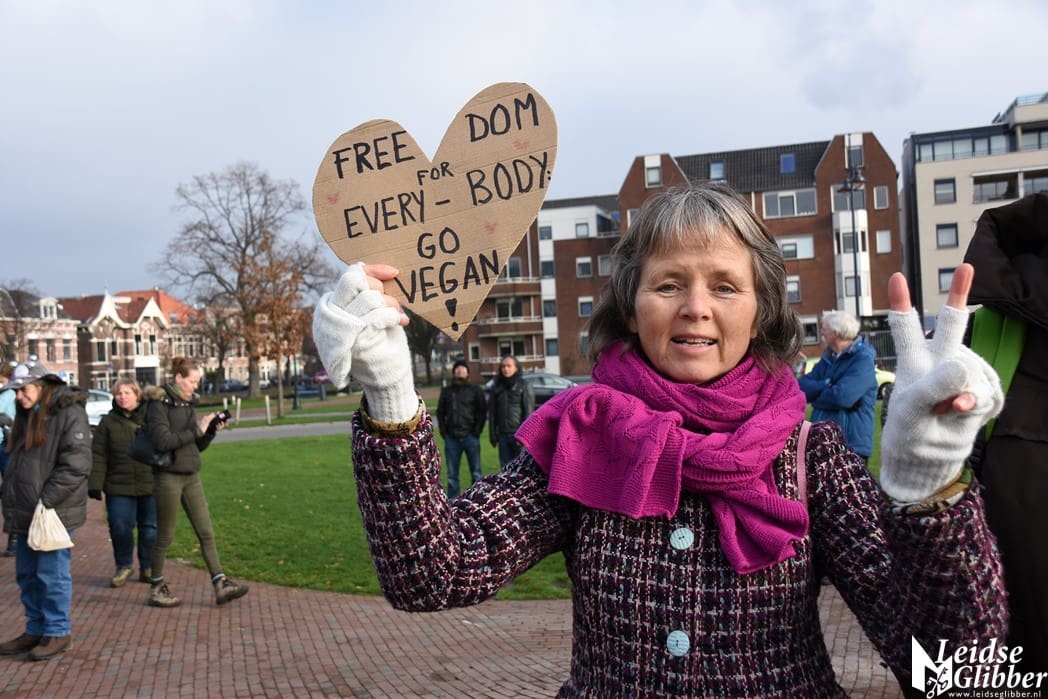 FREE DOM
FOR
EVERY- BODY:
GO
VEGAN
!
Leidse
Glibber
www.leidseglibber.nl